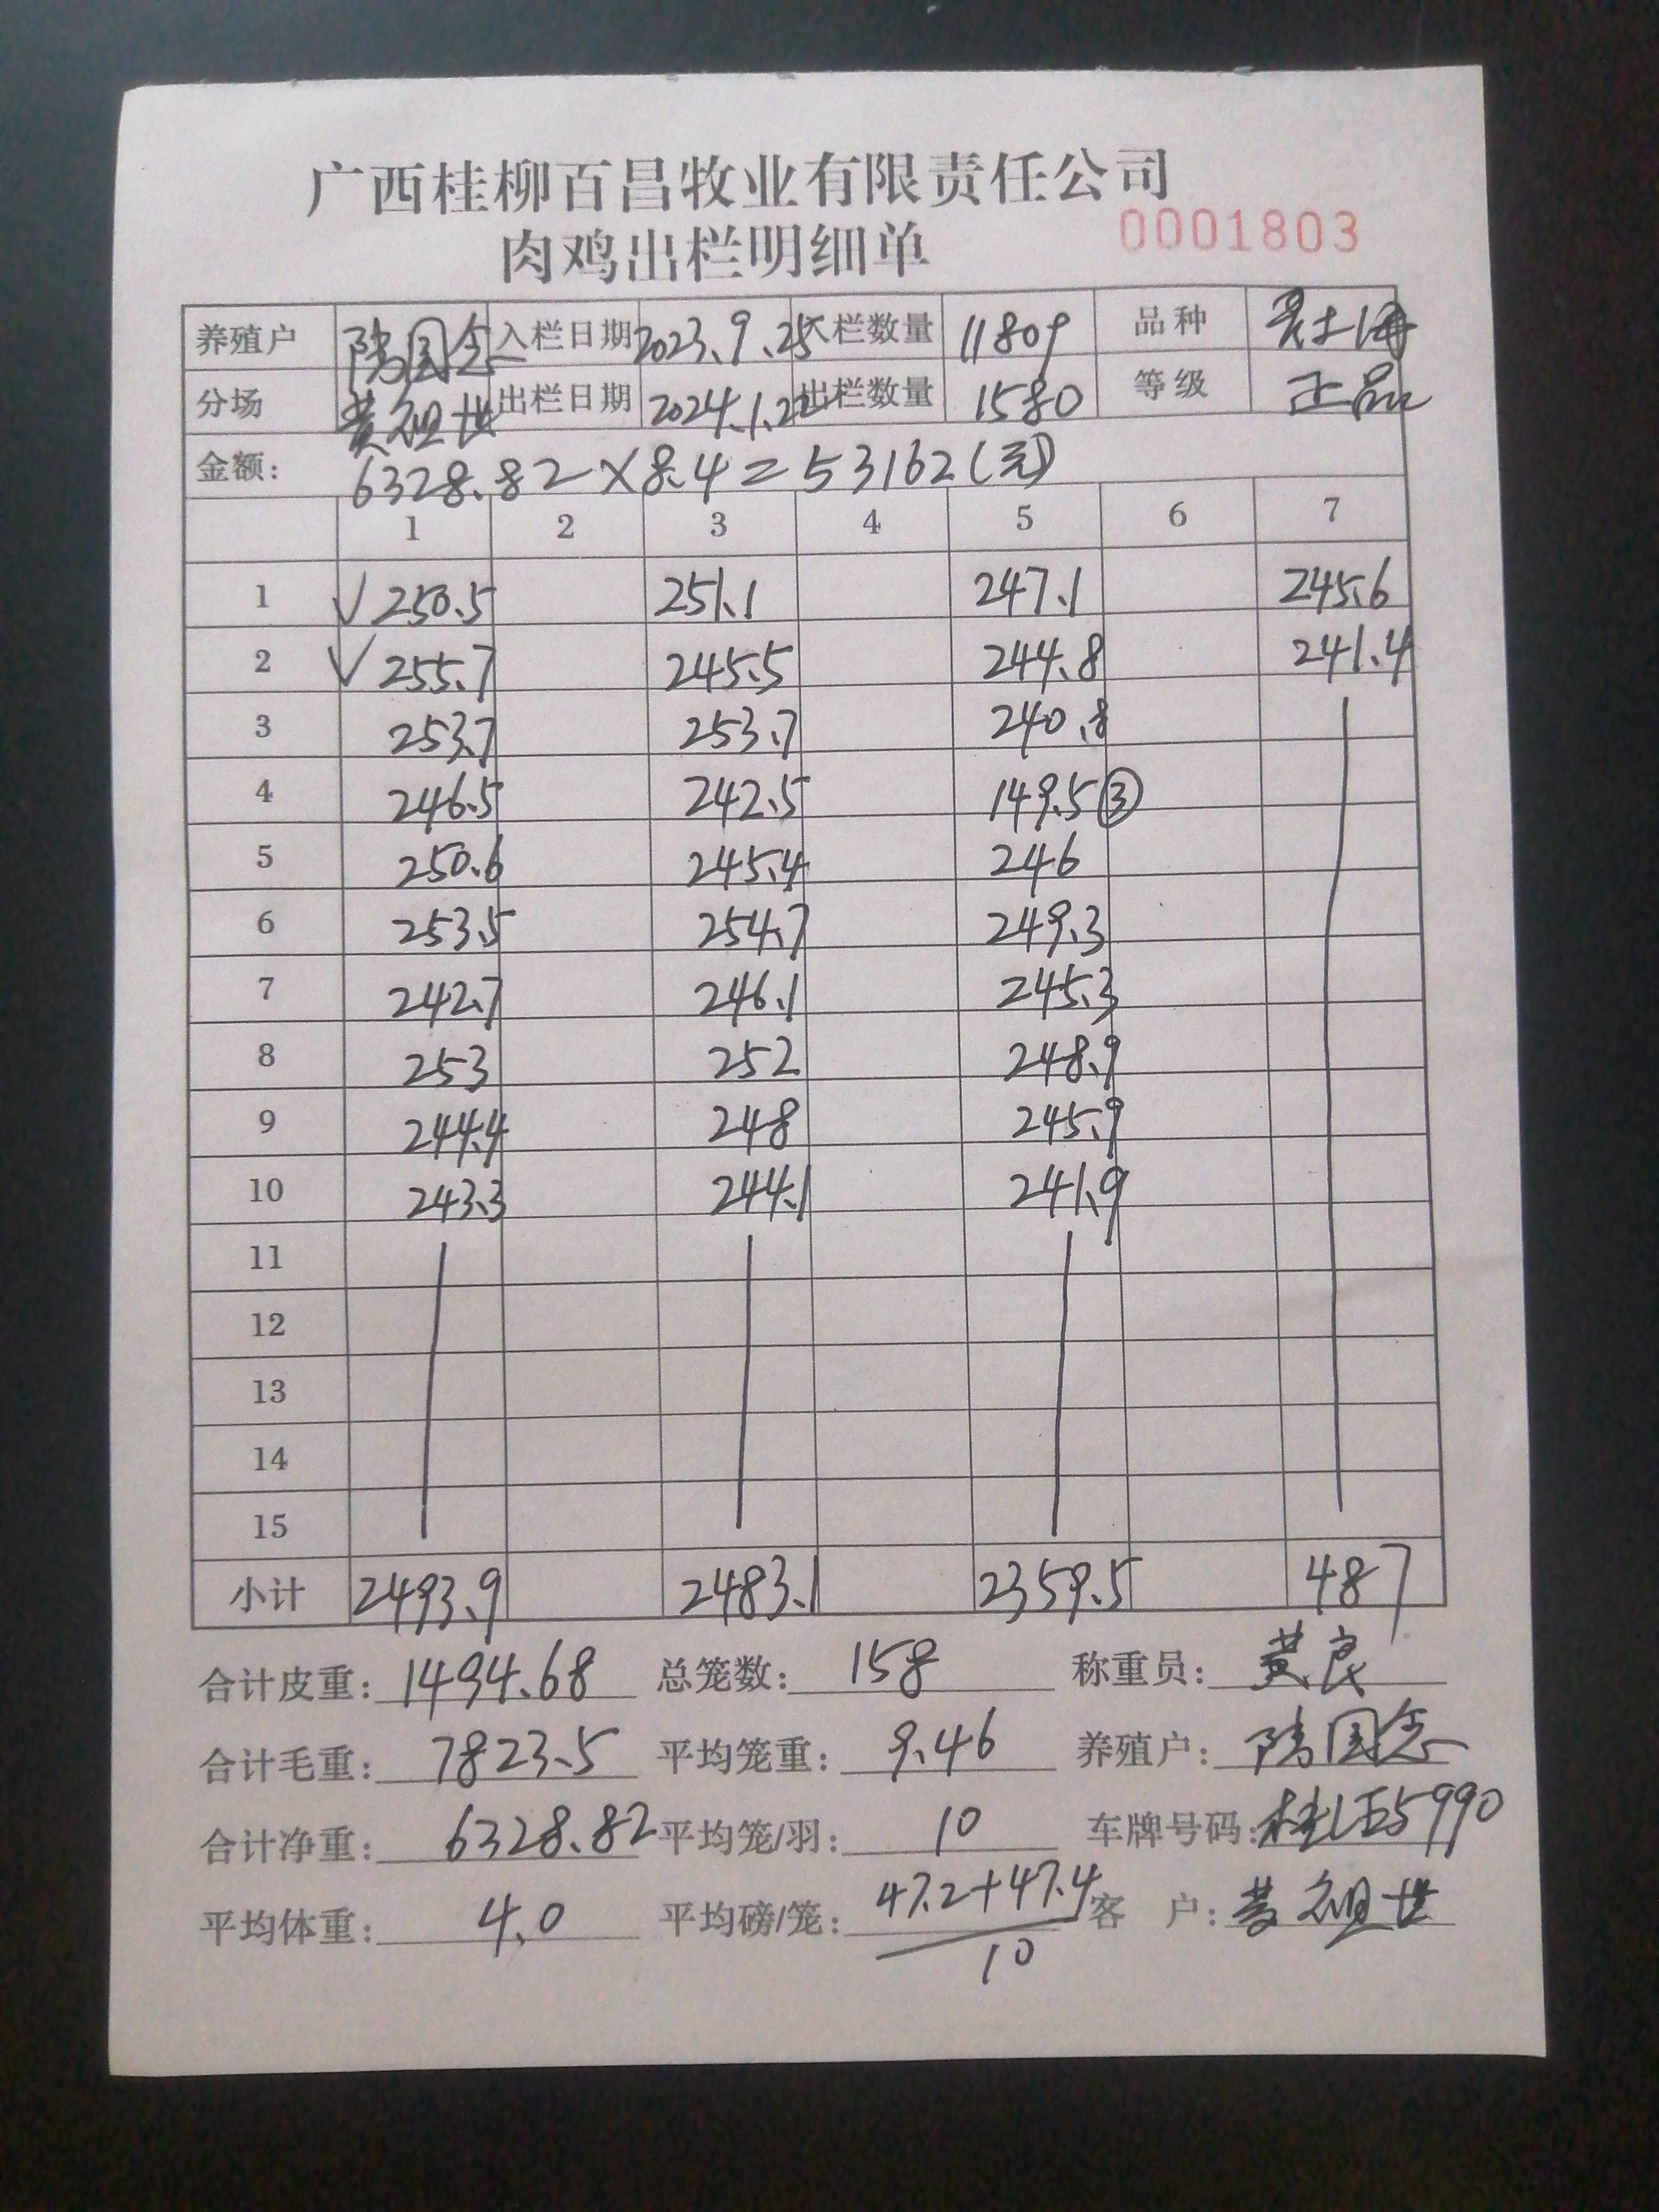 广西桂柳百昌牧业有限责任公司
肉鸡出栏明细单 0001803
养殖户 陆国念 入栏日期 2023.9.25 入栏数量 11809 品种
分场 黄祖世 出栏日期 2024.1.22 出栏数量 1580 等级 正品
金额: 6328.82×8.4=53162(元)
1 2 3 4 5 6 7
1 √250.5 251.1 247.1 245.6
2 √255.7 245.5 244.8 241.4
3 253.7 253.7 240.8
4 246.5 242.5 149.5③
5 250.6 245.4 246
6 253.5 254.7 249.3
7 242.7 246.1 245.3
8 253 252 248.9
9 244.4 248 245.9
10 243.3 244.1 241.9
11
12
13
14
15
小计 2493.9 2483.1 2359.5 487
合计皮重: 1494.68 总笼数: 158 称重员: 黄良
合计毛重: 7823.5 平均笼重: 9.46 养殖户: 陆国念
合计净重: 6328.82 平均笼/羽: 10 车牌号码: 5990
平均体重: 4.0 平均磅/笼: 47.2+47.4 客 户: 黄祖世
10